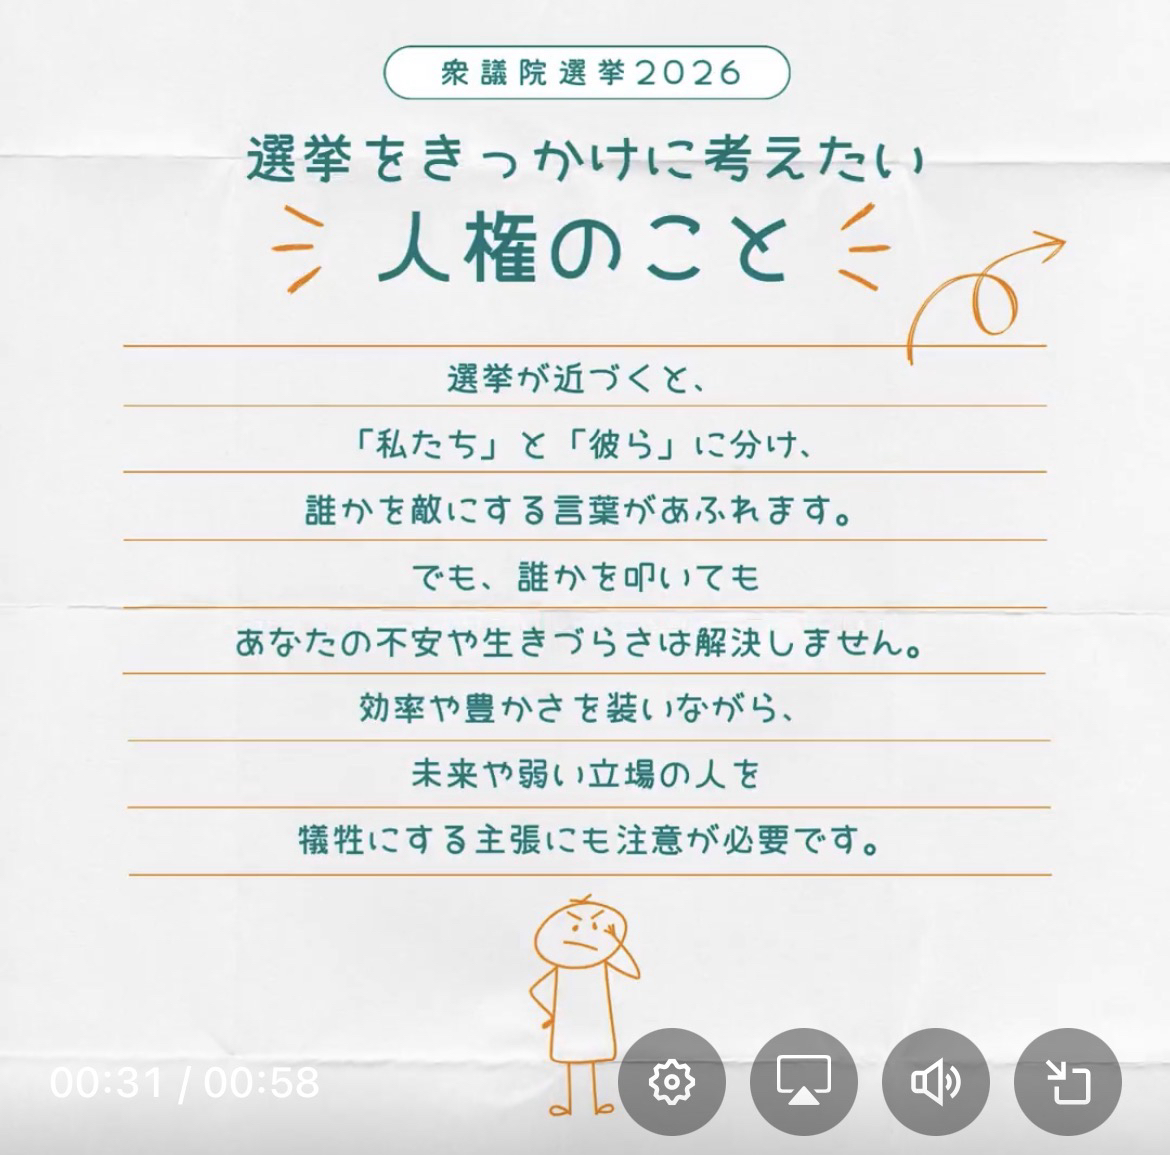 衆議院選挙2026
選挙をきっかけに考えたい
人権のこと
選挙が近づくと、
「私たち」と「彼ら」に分け、
誰かを敵にする言葉があふれます。
でも、誰かを叩いても
あなたの不安や生きづらさは解決しません。
効率や豊かさを装いながら、
未来や弱い立場の人を
犠牲にする主張にも注意が必要です。
00:31 / 00:58